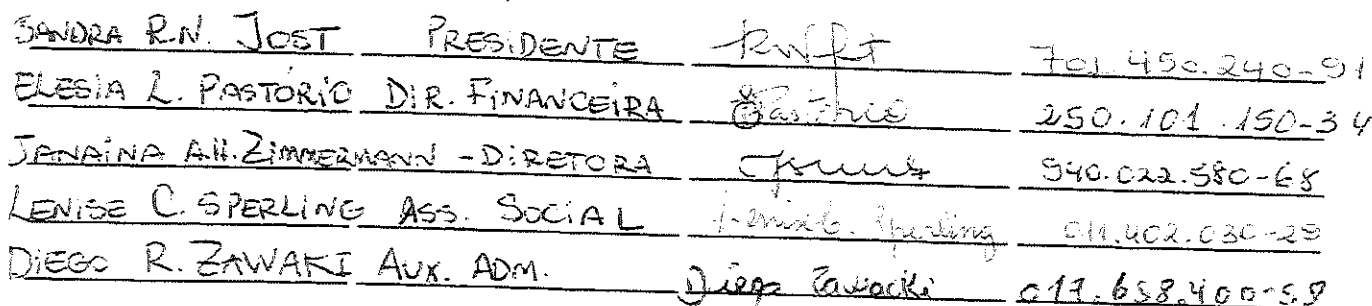 SANDRA R.N. JOST PRESIDENTE 701.450.240-91
ELESIA L. PASTÓRIO DIR. FINANCEIRA 250.101.150-34
JANAÍNA A.H. ZIMMERMANN - DIRETORA 940.022.580-68
LENISE C. SPERLING ASS. SOCIAL Lenise C. Sperling 011.402.030-29
DIEGO R. ZAWAKI AUX. ADM. Diego Zawacki 017.658.400-59